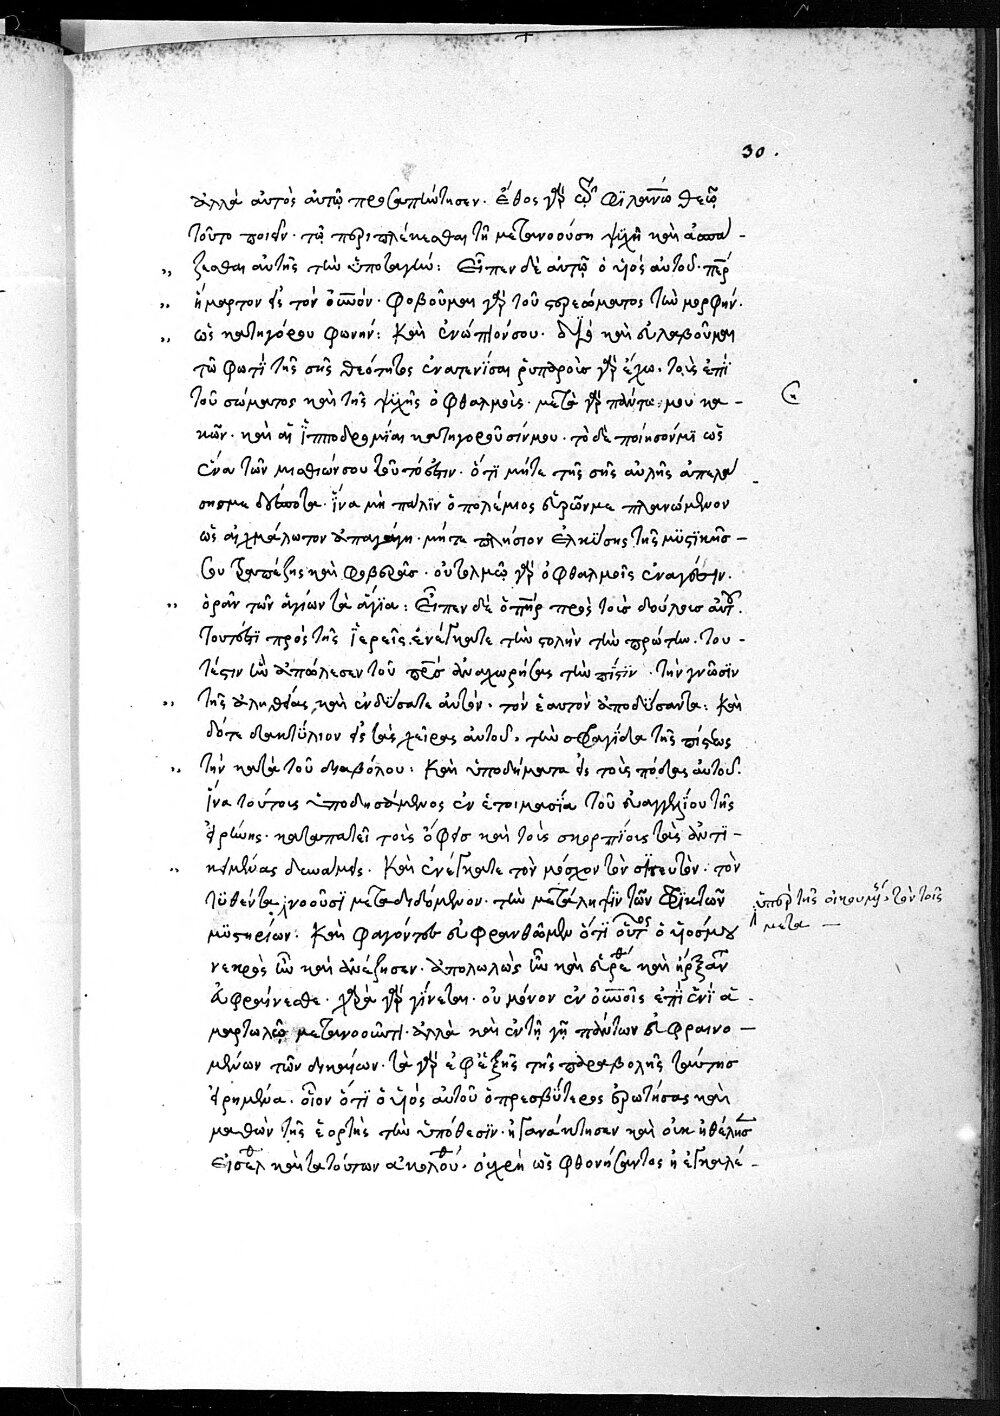 30.
ἀλλὰ αὐτὸς αὐτῷ προϋπήντησεν. ἔθος γὰρ τῷ φϊλαν̅ω θεῷ
τοῦτο ποιεῖν. τῷ περιπλέκεσθαι τῇ μετανοούσῃ ψϋχῇ καὶ ἀσπά-
ζεσθαι αὐτῆς τὴν ὑποταγήν: Εἶπεν δὲ αὐτῷ ὁ ϋἱὸς αὐτοῦ· περ
ἥμαρτον εἰς τὸν οὐνόν. φοβοῦμαι γὰρ τοῦ στρεώματος τὴν μορφήν.
ὡς κατηγόρου φωνήν: Καὶ ἐνώπιόν σου. διὸ καὶ εὐλαβοῦμαι
τῷ φωτῒ τῆς σῆς θεότητος ἐνατενίσαι ῥυπαροῖς γὰρ ἔχω. τοῖς ἐπῒ
τοῦ σώματος καὶ τῆς ψϋχῆς ὀφθαλμοῖς. μετὰ γὰρ πάντων μου κα-
κῶν. καὶ αἱ ἱπποδρομίαι κατηγοροῦσίν μου. τὸ δὲ ποίησόν μϊ ὡς
ἕνα τῶν μισθίων σου τοῦτό ἐστιν. ὅτι μήτε τῆς σῆς αὐλῆς ἀπελά
σῃς με δέσποτα. ἵνα μὴ πάλϊν ὁ πολέμιος εὑρών με πλανώμενον
ὡς αἰχμάλωτον ἀπαγάγῃ. μήτε πλησίον ἑλκύσῃς τῆς μϋστϊκῆς-
σου τραπέζης καὶ φοβερᾶς. οὐ τολμῶ γὰρ ὀφθαλμοῖς ἐναγέσιν.
ὁρᾶν τῶν ἁγίων τὰ ἅγϊα: Εἶπεν δὲ ὁ πηρ πρὸς τοὺς δούλους αὐτ.
τουτέστϊ πρὸς τῆς ἱερεῖς ἐνέγκατε τὴν στολὴν τὴν πρώτην. του-
τέστιν ἣν ἀπώλεσεν τοῦ προς ἀναχωρήσας τὴν πίστϊν. τὴν γνῶσϊν
τῆς ἀληθείας, καὶ ἐνδύσατε αὐτόν. τὸν ἑαυτὸν ἀποδύσαντα: Καὶ
δότε δακτϋλιον εἰς τὰς χεῖρας αὐτοῦ. τὴν σφραγίδα τῆς πίστεως
τὴν κατὰ τοῦ διαβόλου: Καὶ ὑποδήματα εἰς τοὺς πόδας αὐτοῦ.
ἵνα τούτοις ὑποδησάμενος ἐν ἑτοιμασίᾳ τοῦ εὐαγγελίου τῆς
εἰρήνης. καταπατεῖ τοὺς ὄφεις καὶ τοὺς σκορπίους τὰς ἀντϊ-
κειμένας δυνάμεις. Καὶ ἐνέγκατε τὸν μόσχον τὸν σϊτευτόν. τὸν
τϋθέντα, νοοῦσϊ μεταδιδόμενον. τὴν μετάληψϊν τῶν φρικτῶν
μϋστηρίων: Καὶ φαγόντες εὐφρανθῶμεν ὅτϊ οὗτος ὁ ϋἱός μου
νεκρὸς ἦν καὶ ἀνέζησεν. ἀπολωλὼς ἦν καὶ εὑρέθ καὶ ἤρξαν
εὐφραίνεσθε. χαρὰ γὰρ γίνεται. οὐ μόνον ἐν οὐνοῖς ἐπῒ ἑνῒ ἁ-
μαρτωλῷ μετανοοῦντι. ἀλλὰ καὶ ἐν τῇ γῇ πάντων εὐφραινο-
μένων τῶν δικαίων. τὰ γὰρ ἐφέξῆς τῆς παραβολῆς ταύτης
εἰρημένα. οἷον ὅτϊ ὁ ϋἱὸς αὐτοῦ ὁ πρεσβύτερος ἐρωτήσας καὶ
μαθὼν τῆς ἑορτῆς τὴν ὑπόθεσϊν. ἠγανάκτησεν καὶ οὐκ ἤθελησ
εἰσελθ καὶ τὰ τούτων ἀκολούθ. οὐχὶ ὡς φθονήσαντος ἢ ἐγκαλέ-
ὑπὲρ τῆς οἰκουμένης τὸν τοῖς
μετα -